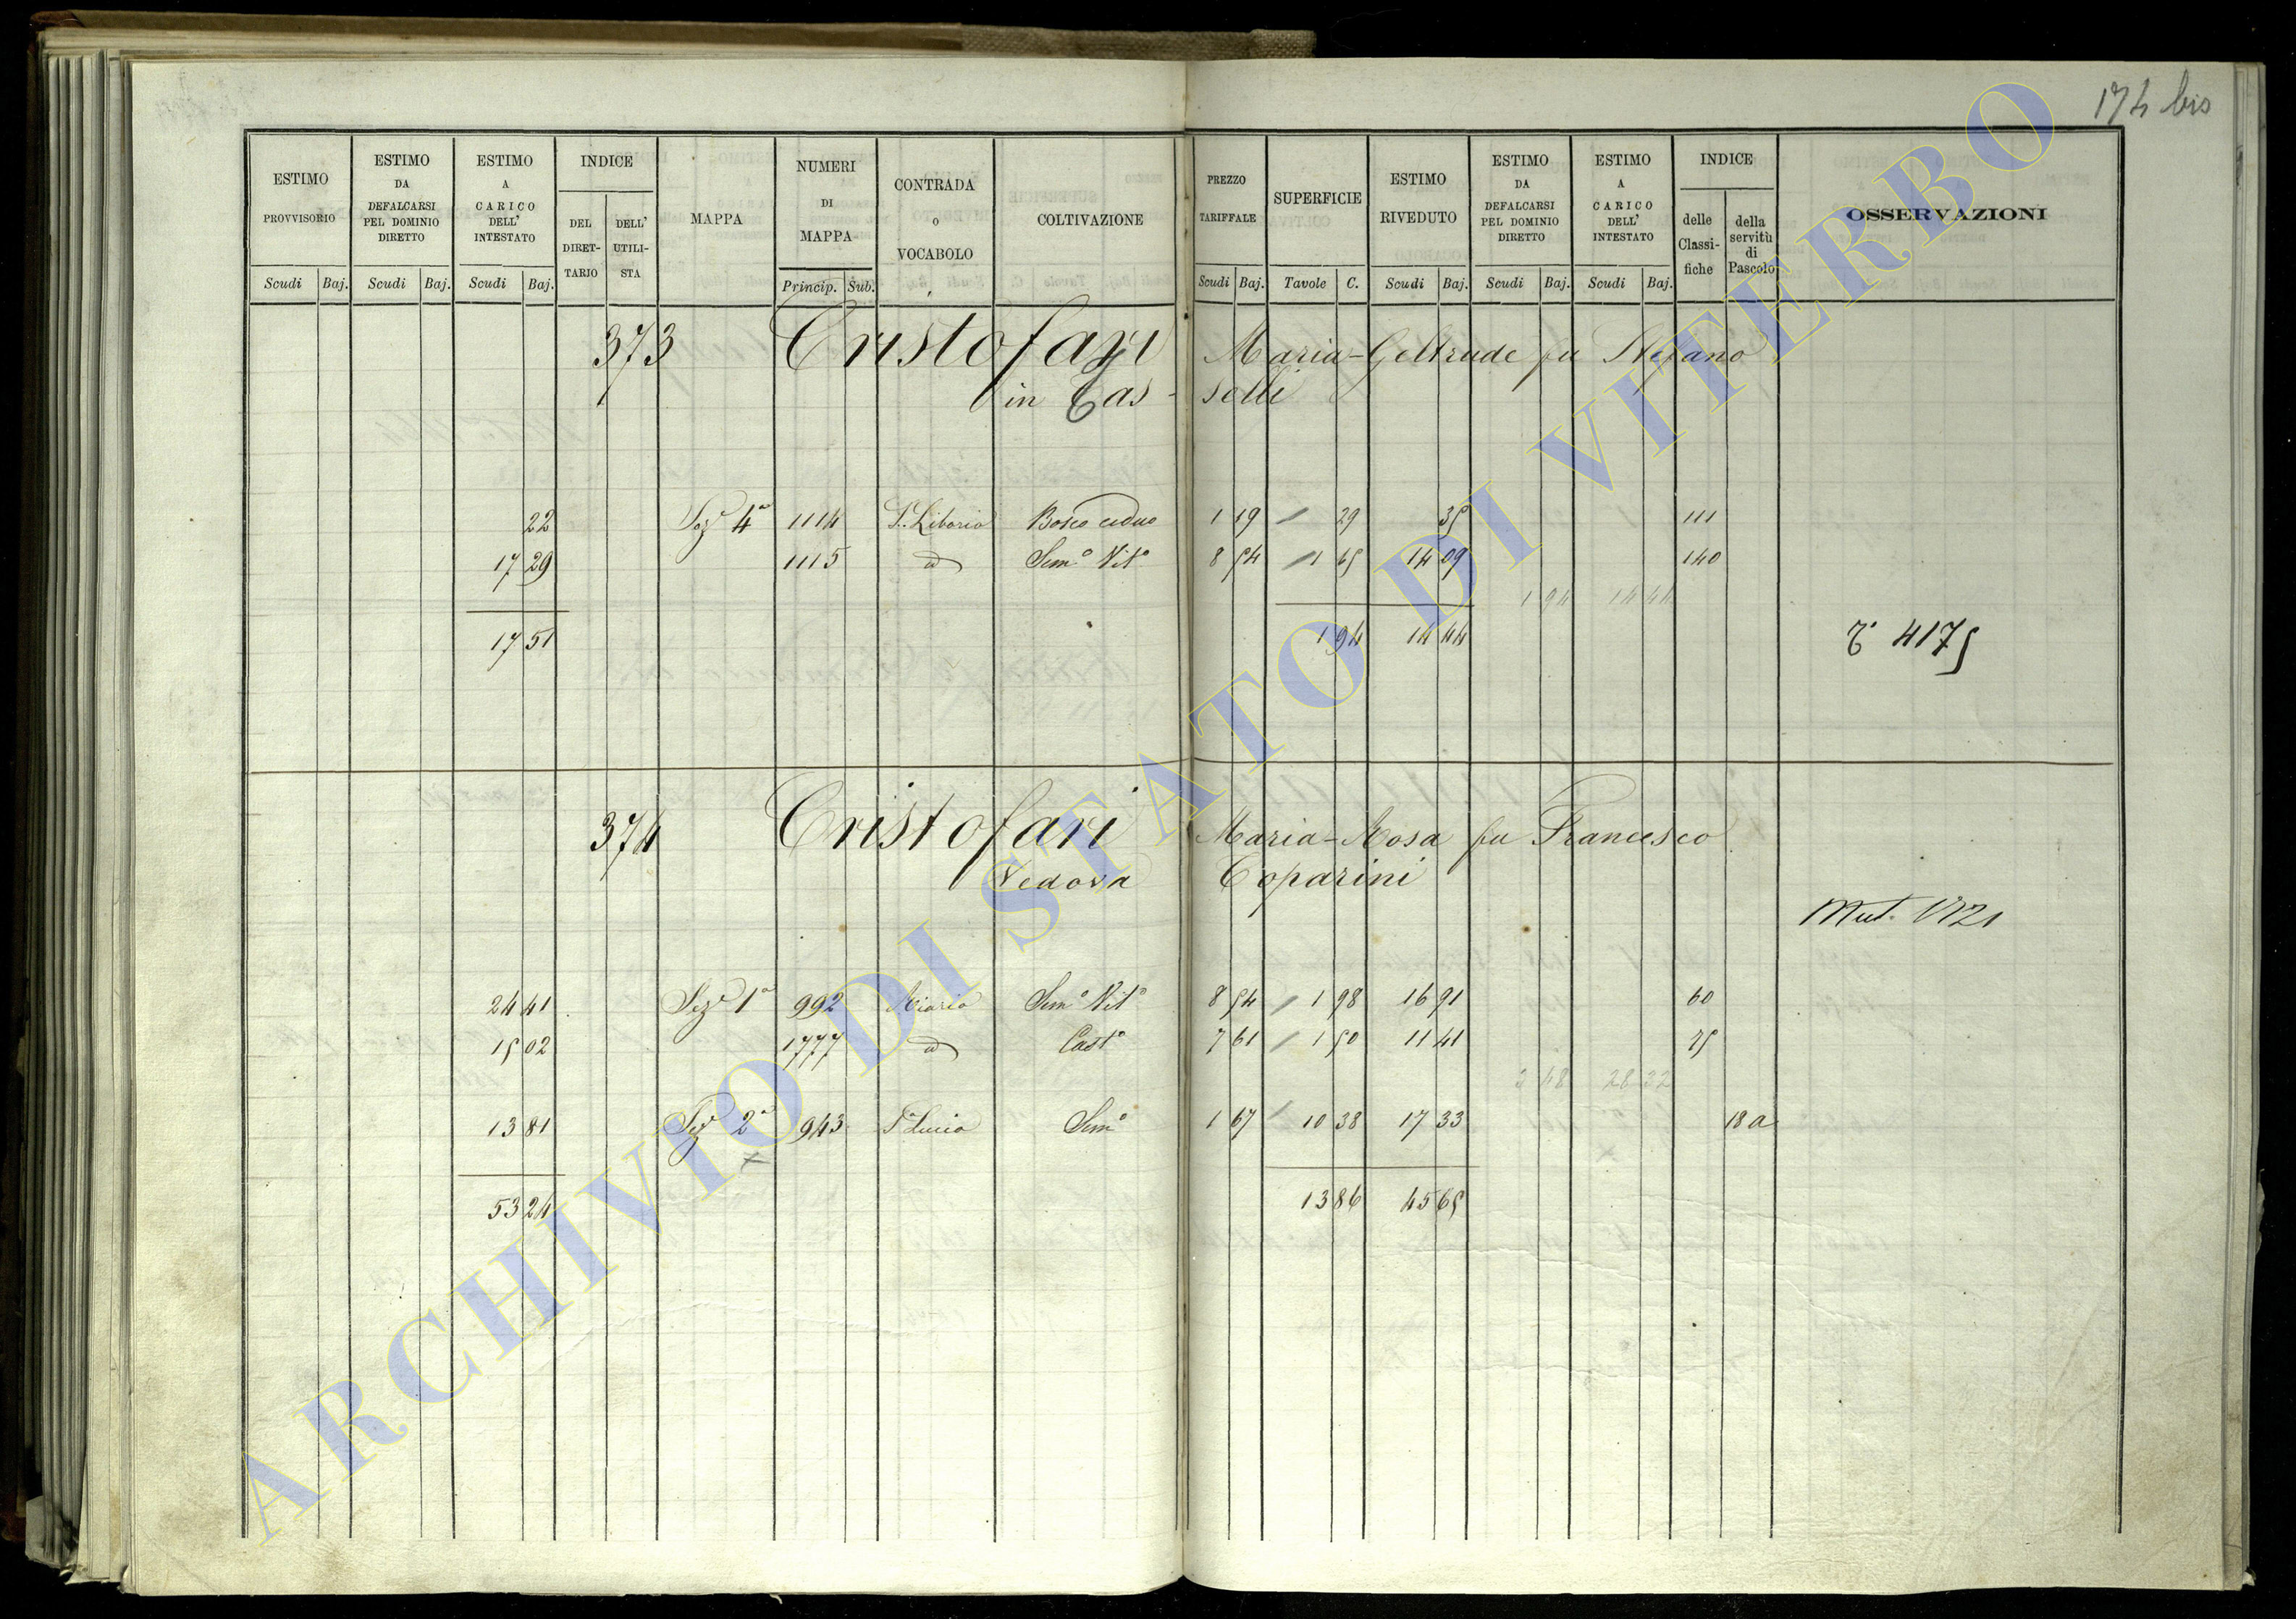 174 bis
ESTIMO PROVVISORIO
ESTIMO DA DEFALCARSI PEL DOMINIO DIRETTO
ESTIMO A CARICO DELL' INTESTATO
INDICE
DEL DIRET-TARIO
DELL' UTILI-STA
MAPPA
NUMERI DI MAPPA
CONTRADA O VOCABOLO
COLTIVAZIONE
PREZZO TARIFFALE
SUPERFICIE
ESTIMO RIVEDUTO
ESTIMO DA DEFALCARSI PEL DOMINIO DIRETTO
ESTIMO A CARICO DELL' INTESTATO
INDICE
delle Classi-fiche
della servitù di Pascolo
OSSERVAZIONI
Scudi Baj. Scudi Baj. Scudi Baj. Princip. Sub. Scudi Baj. Tavole C. Scudi Baj. Scudi Baj. Scudi Baj.
373 Cristofari Maria-Geltrude fu Stefano
in Cas-selli
22 Sez.e 4a 1114 S. Liborio Bosco ceduo 1 19 29 35 111
17 29 1115 d Sem.o Vit.o 8 54 1 65 14 09 140
1 94 14 44
17 51 1 94 14 44 T. 4175
374 Cristofari Maria-Rosa fu Francesco
Vedova Coparini
Mut.
24 41 Sez.e 1a 992 Miario Sem.o Vit.o 8 54 1 98 16 91 60
15 02 1777 d Cast.o 7 61 1 50 11 41 25
3 48 28 32
13 81 Sez.e 2a 943 S. Lucia Sem.o 1 67 10 38 17 33 18 a
53 24 13 86 45 65
ARCHIVIO DI STATO DI VITERBO